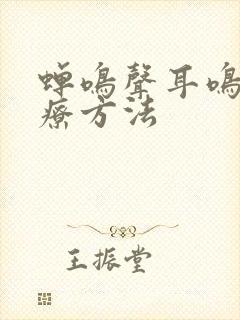 蟬鳴聲耳鳴
療方法
王振堂